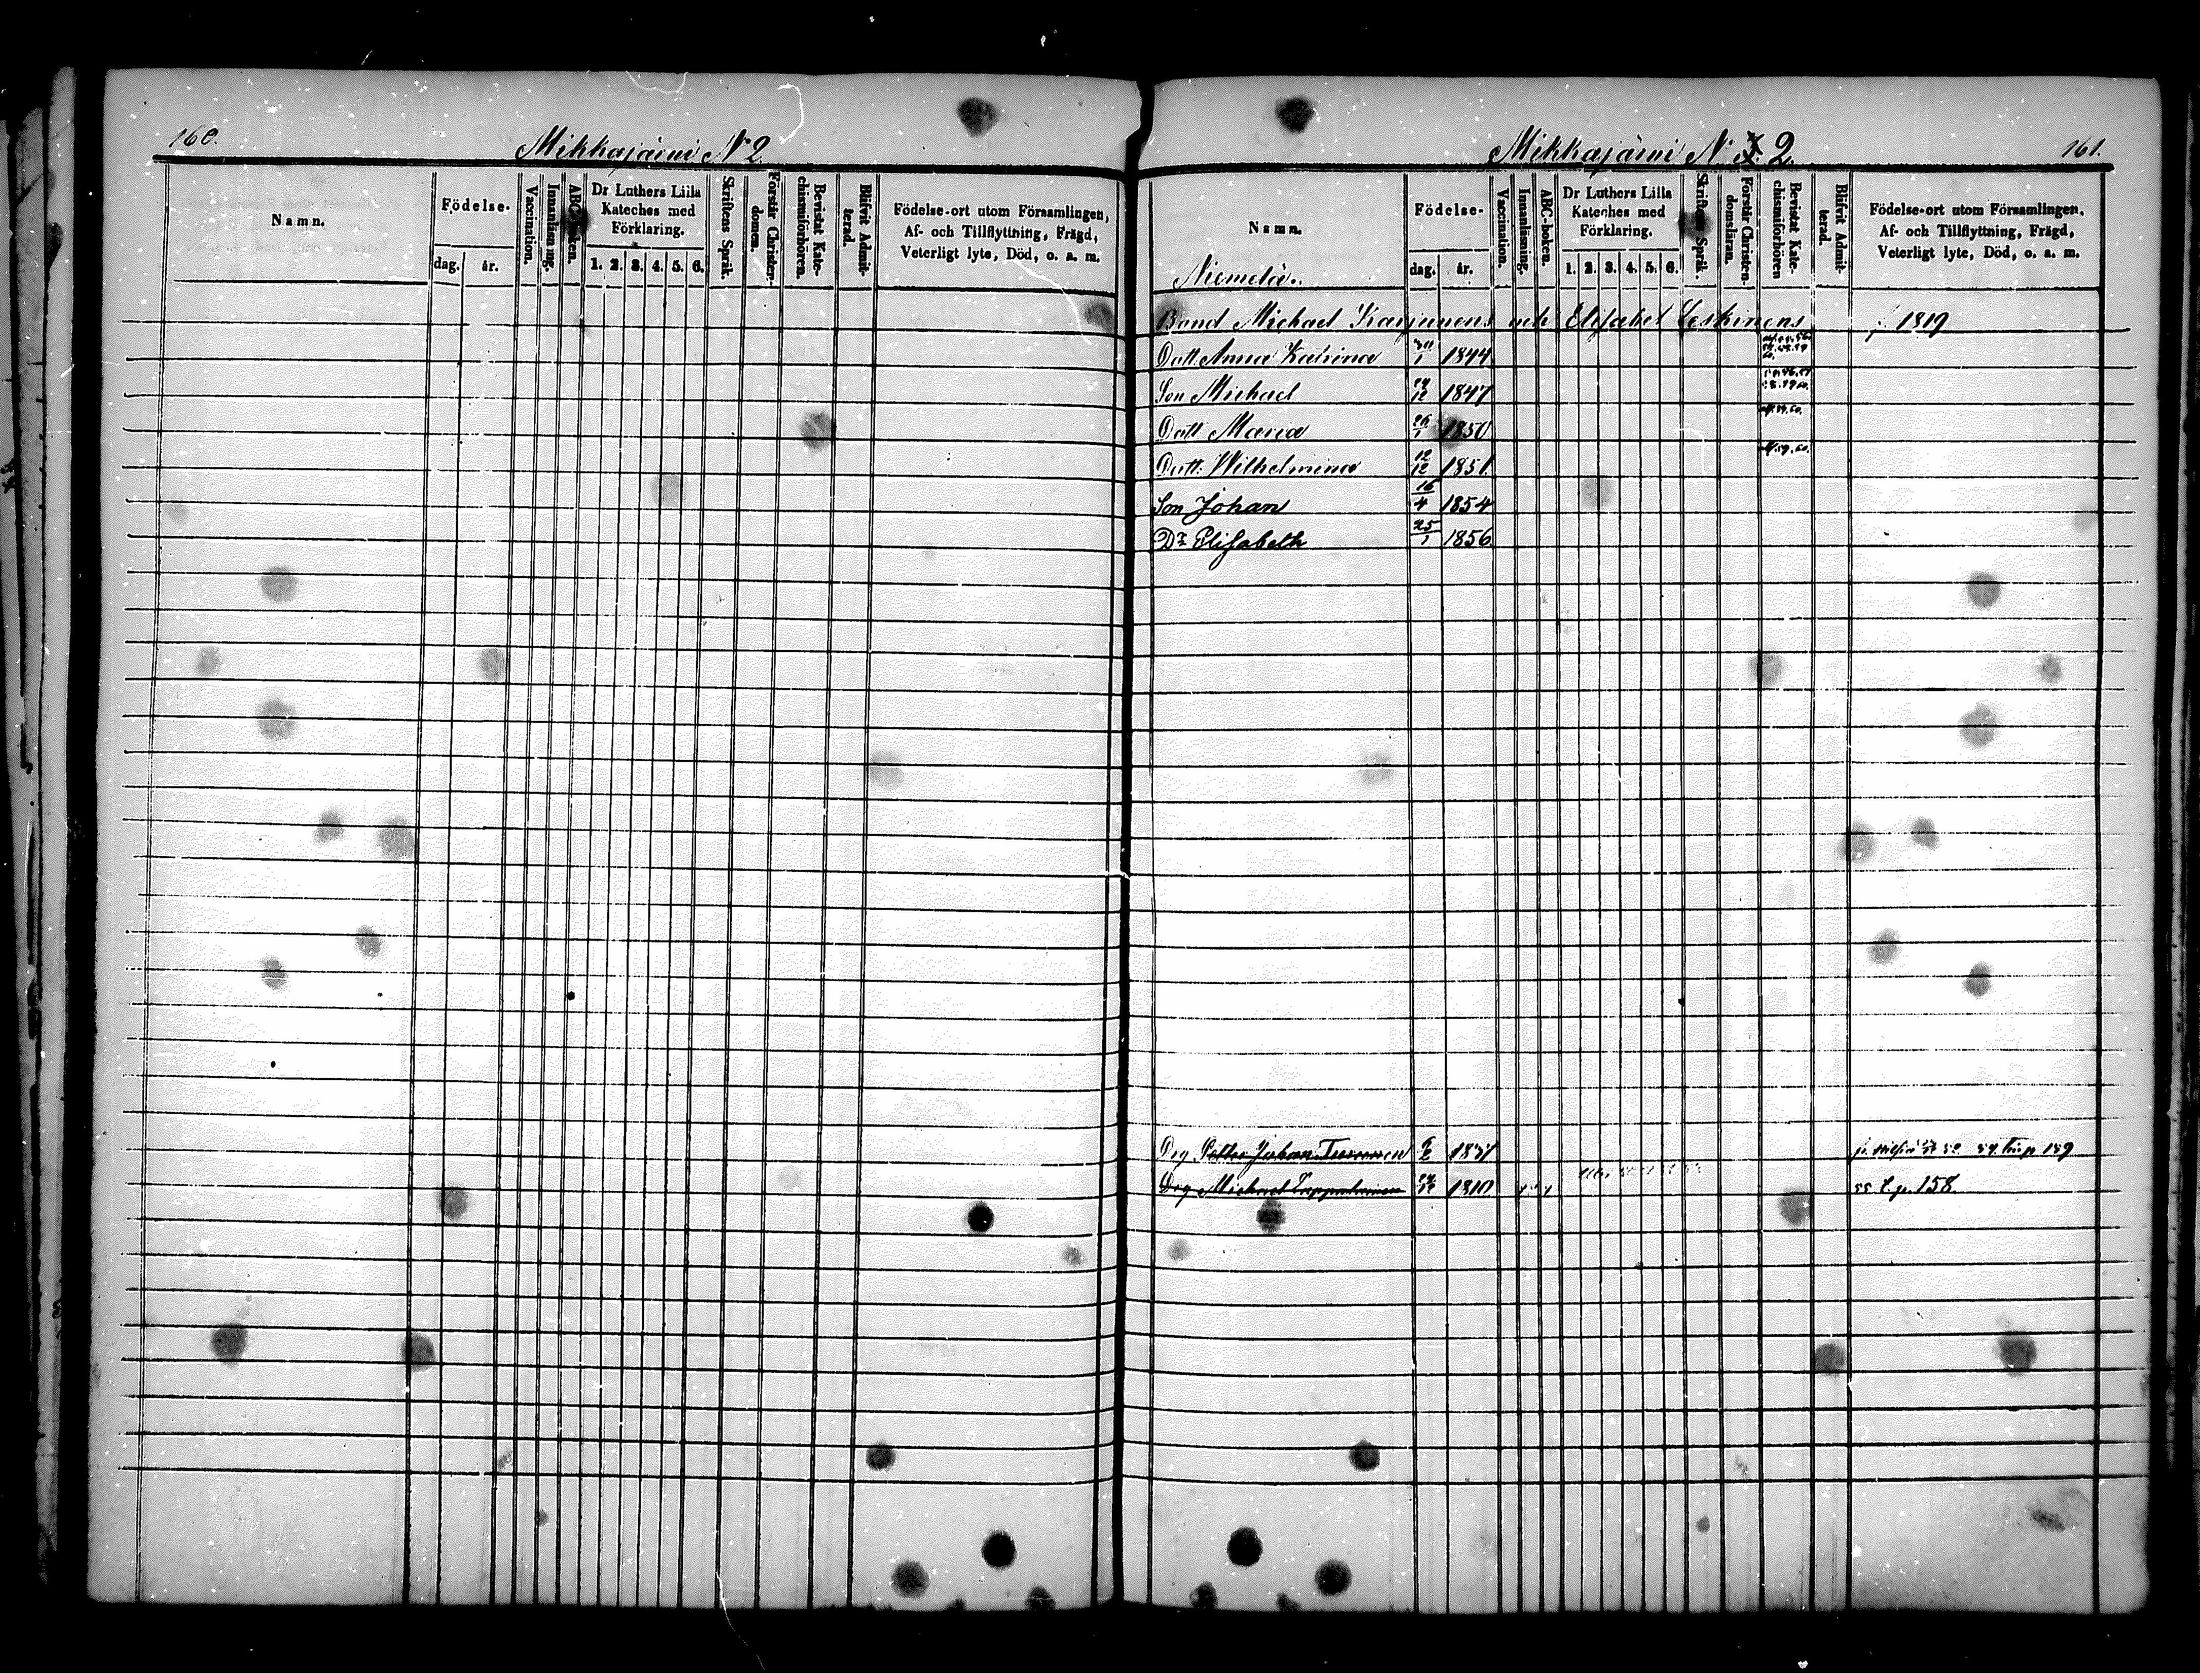 160.
Mikkajärvi N 2
Namn.
Födelse-
dag. år.
Vaccination.
Innanläsning.
ABC-boken.
Dr Luthers Lilla Kateches med Förklaring.
1. 2. 3. 4. 5. 6.
Skriftens Språk.
Bevistat Katechismiförhören.
Blifvit Admitterad.
Födelse-ort utom Församlingen,
Af- och Tillflyttning, Frägd,
Veterligt lyte, Död, o. a. m.
Mikkajärvi N 2.
161.
Namn.
Niemelä.
Födelse-
dag. år.
Vaccination.
Innanläsning.
ABC-boken.
Dr Luthers Lilla Kateches med Förklaring.
1. 2. 3. 4. 5. 6.
Skriftens Språk.
Förstår Christendomsläran.
Bevistat Katechismiförhören
Blifvit Admitterad.
Födelse-ort utom Församlingen,
Af- och Tillflyttning, Frägd,
Veterligt lyte, Död, o. a. m.
Bond Michael Karjunens och Elisabet Leskinens 1819
Dott Anna Katrina 1844
Son Michael 1847
Dott Maria 26/1 1850
Dott. Wilhelmina 12/12 1851.
Son Johan 16/4 1854
Dr Elisabeth 25/1 1856.
Drg Johan 1837
Drg Michael 1810 p. 158.